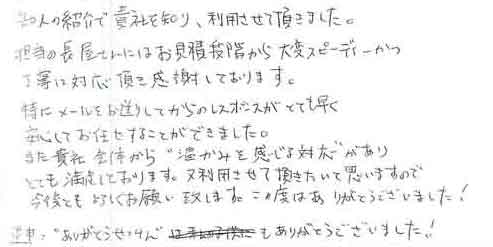 知人の紹介で貴社を知り、利用させて頂きました。
担当の長屋さんにはお見積段階から大変スピーディーかつ
丁寧に対応頂き感謝しております。
特にメールをお送りしてからのレスポンスがとても早く
安心してお任せすることができました。
また貴社全体から“温かみを感じる対応”があり
とても満足しております。又利用させて頂きたいと思いますので
今後とも宜しくお願い致します。この度はありがとうございました!
追申:“ありがとうせっけん” もありがとうございました!